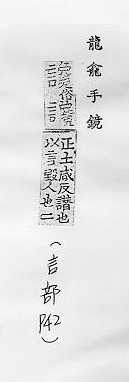 龍龕手鏡
俗
正士咸反譖也
以言毀人也二
(言部 P42)